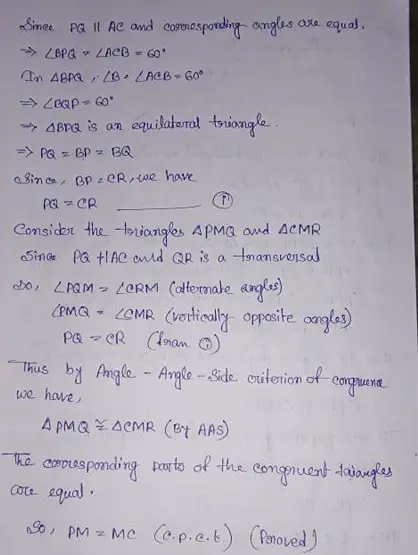 Since PQ || AC and corresponding angles are equal.
⇒ ∠BPQ = ∠ACB = 60°
In ΔBPQ, ∠B = ∠ACB = 60°
⇒ ∠BQP = 60°
⇒ ΔBPQ is an equilateral triangle.
⇒ PQ = BP = BQ
Since, BP = CR, we have
PQ = CR ①
Consider the triangles ΔPMQ and ΔCMR
Since PQ || AC and QR is a transversal
So, ∠PQM = ∠CRM (alternate angles)
∠PMQ = ∠CMR (vertically opposite angles)
PQ = CR (from ①)
Thus by Angle - Angle - Side criterion of congruence
we have,
ΔPMQ ≅ ΔCMR (By AAS)
The corresponding parts of the congruent triangles
are equal.
So, PM = MC (c.p.c.t.) (Proved)